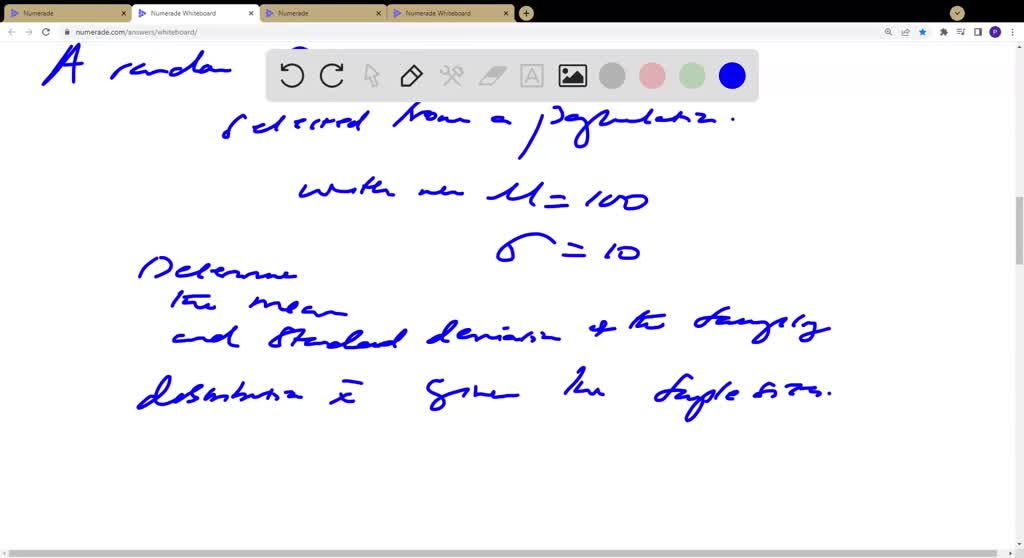 Numerade
Numerade Whiteboard
Numerade
Numerade Whiteboard
numerade.com/answers/whiteboard/
A random
selected from a population.
with mean μ = 100
σ = 10
Determine
the mean
and standard deviation of the sampling
distribution x̄ given the sample sizes.